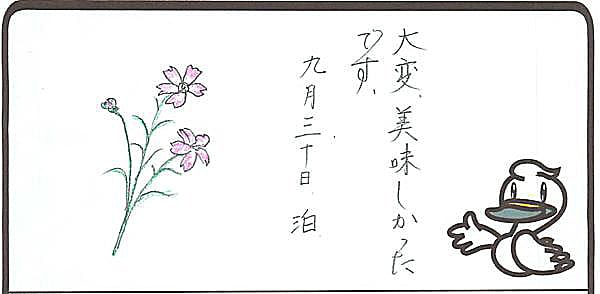 大変、美味しかった
です。
九月三十日、泊